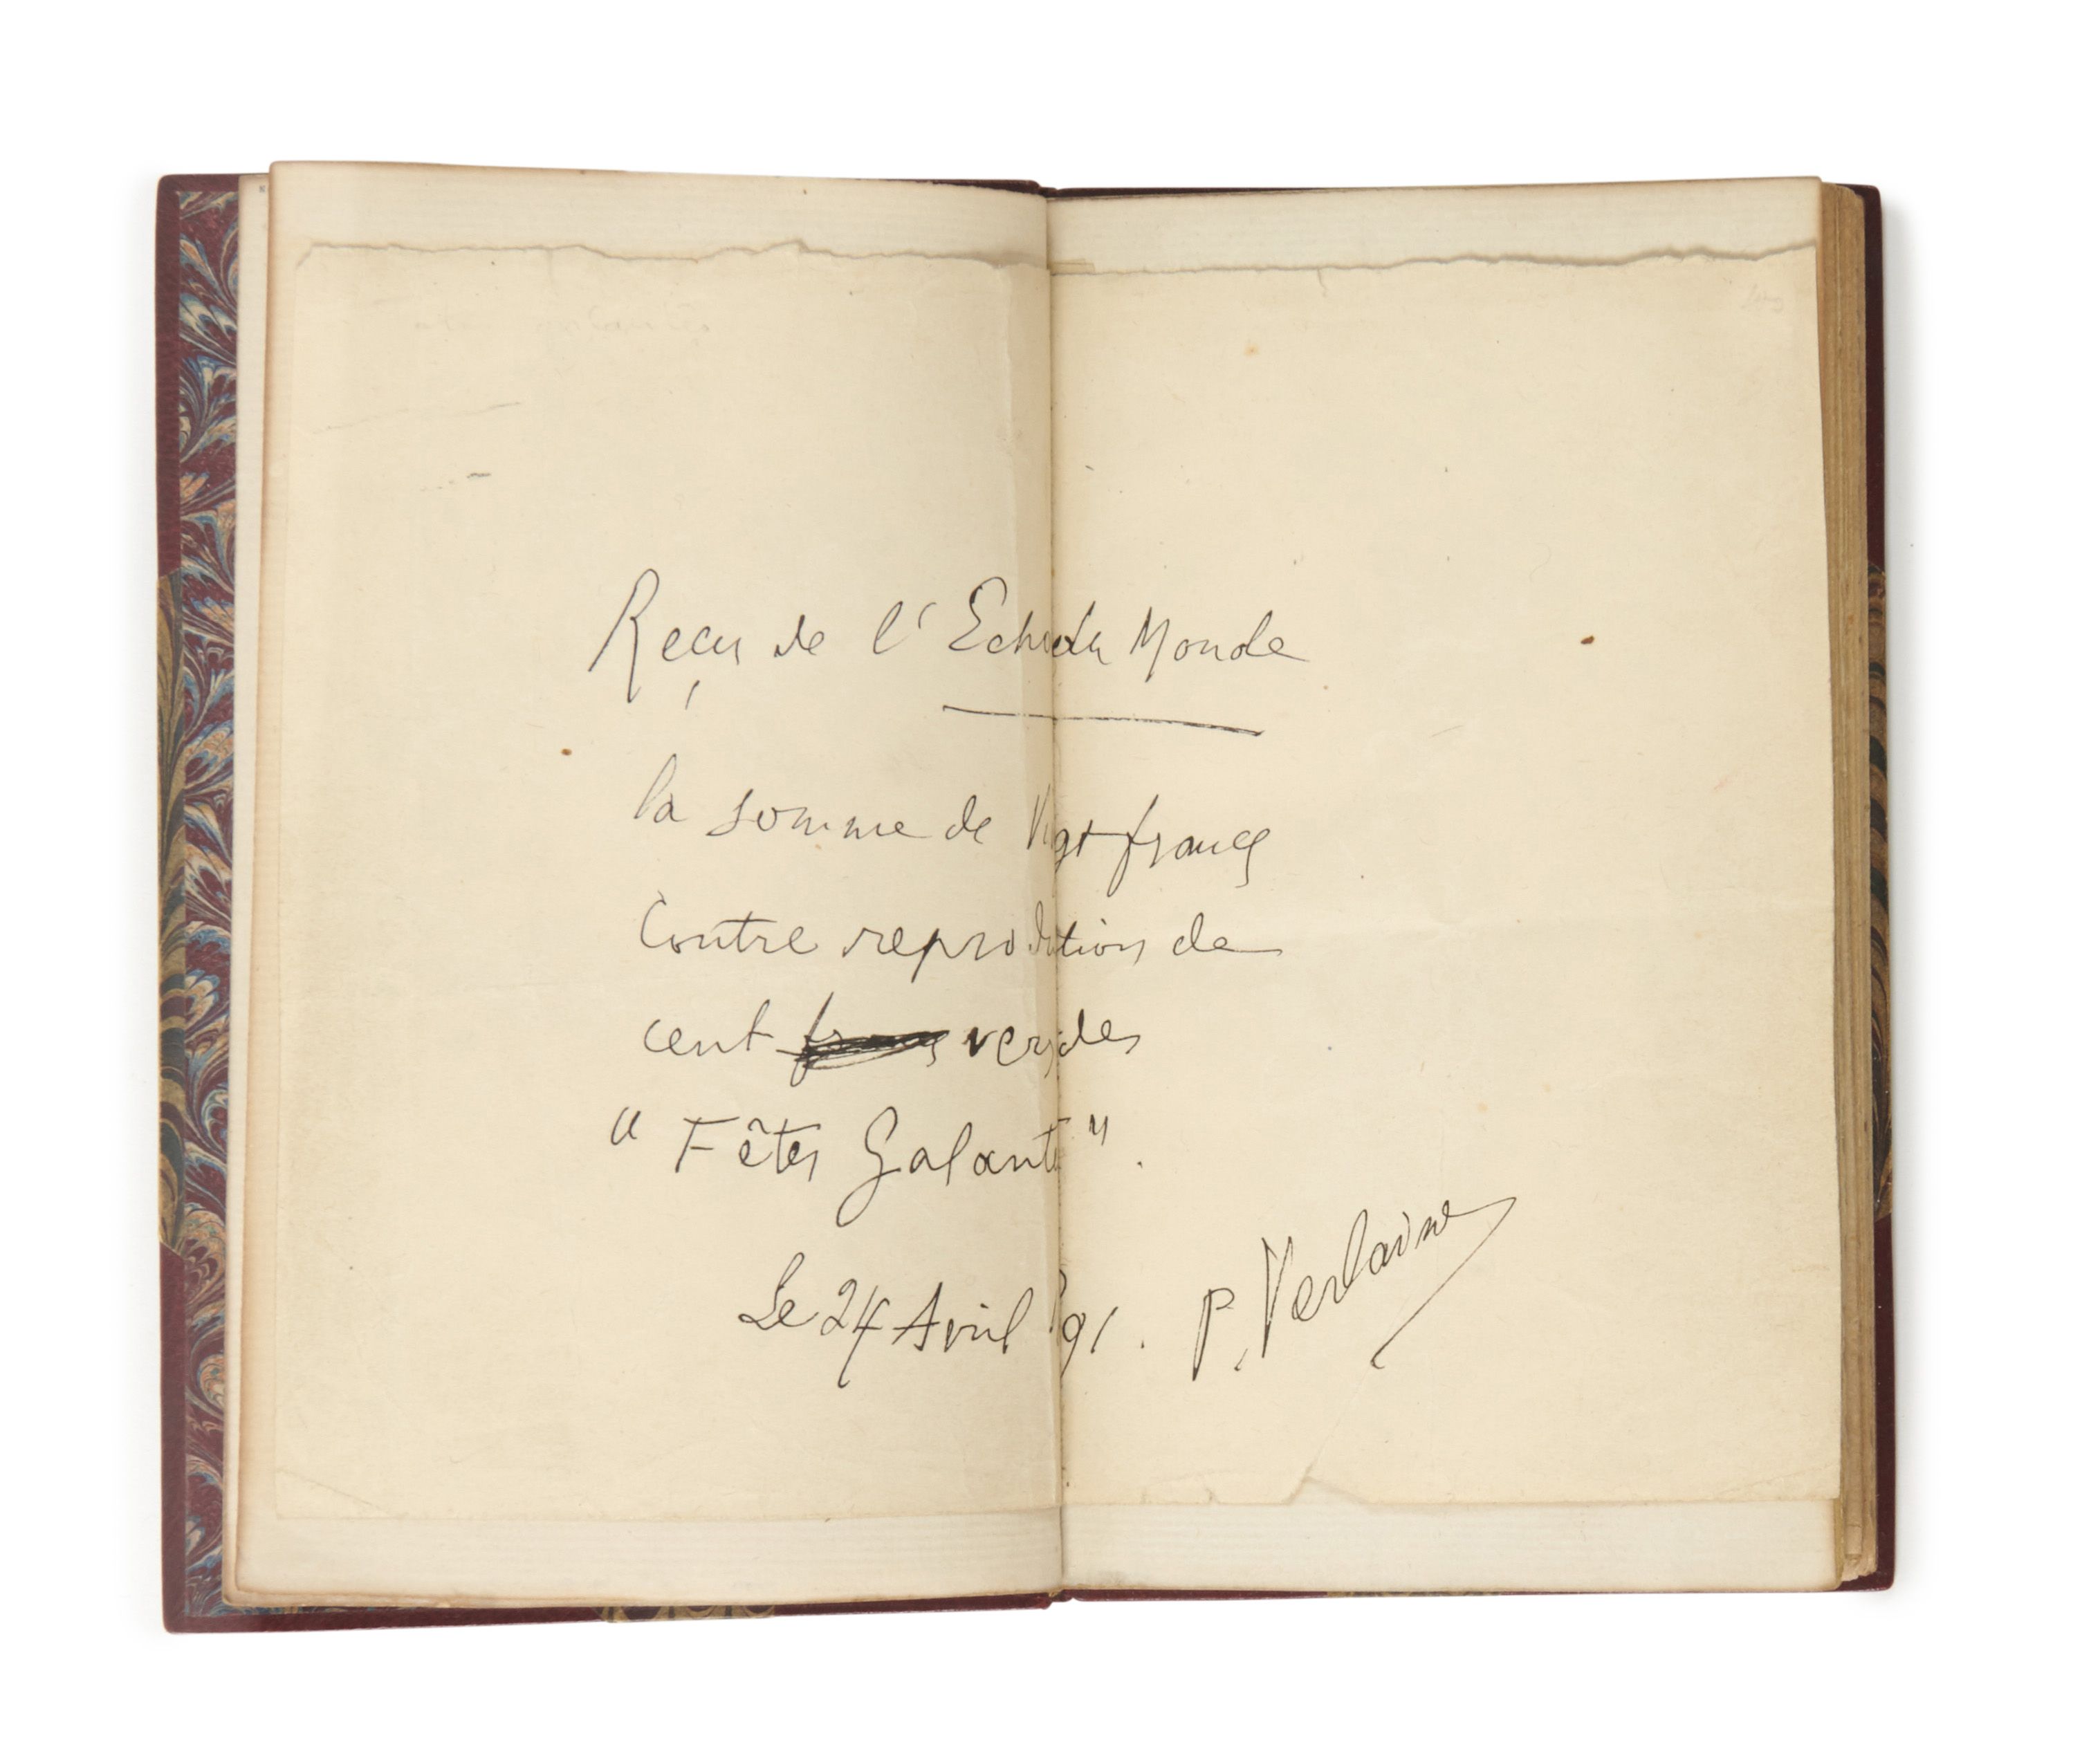 Reçu de l'Echo du Monde
la somme de Vingt francs
Contre reproduction de
cent francs vers des
" Fêtes Galantes " .
Le 24 Avril 91 . P. Verlaine